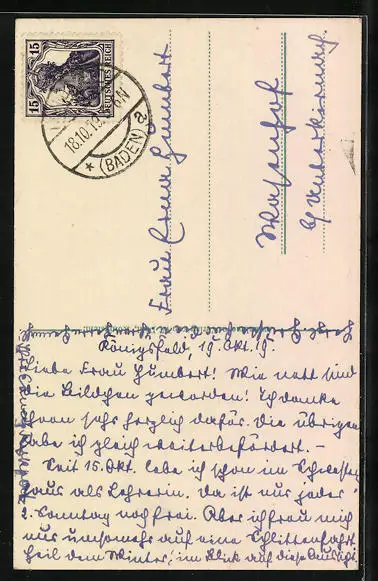 15
15
DEUTSCHES REICH
18.10.19.
6N
* (BADEN) a
Frau Erna Humbert
b/ Unterkirnach
Königsfeld, 19. Okt. 19.
Liebe Frau Humbert! Wie nett sind
die Bildchen geworden! Ich danke
Ihnen sehr herzlich dafür. Die übrigen
habe ich gleich weiterbefördert. –
Seit 15. Okt. lebe ich schon im Schwestern
haus als Lehrerin. Da ist nur jeder
2. Sonntag noch frei. Aber ich freu mich
nur umsomehr auf eine Schlittenfahrt
heil dem Winter, im Blick auf diese Aussicht